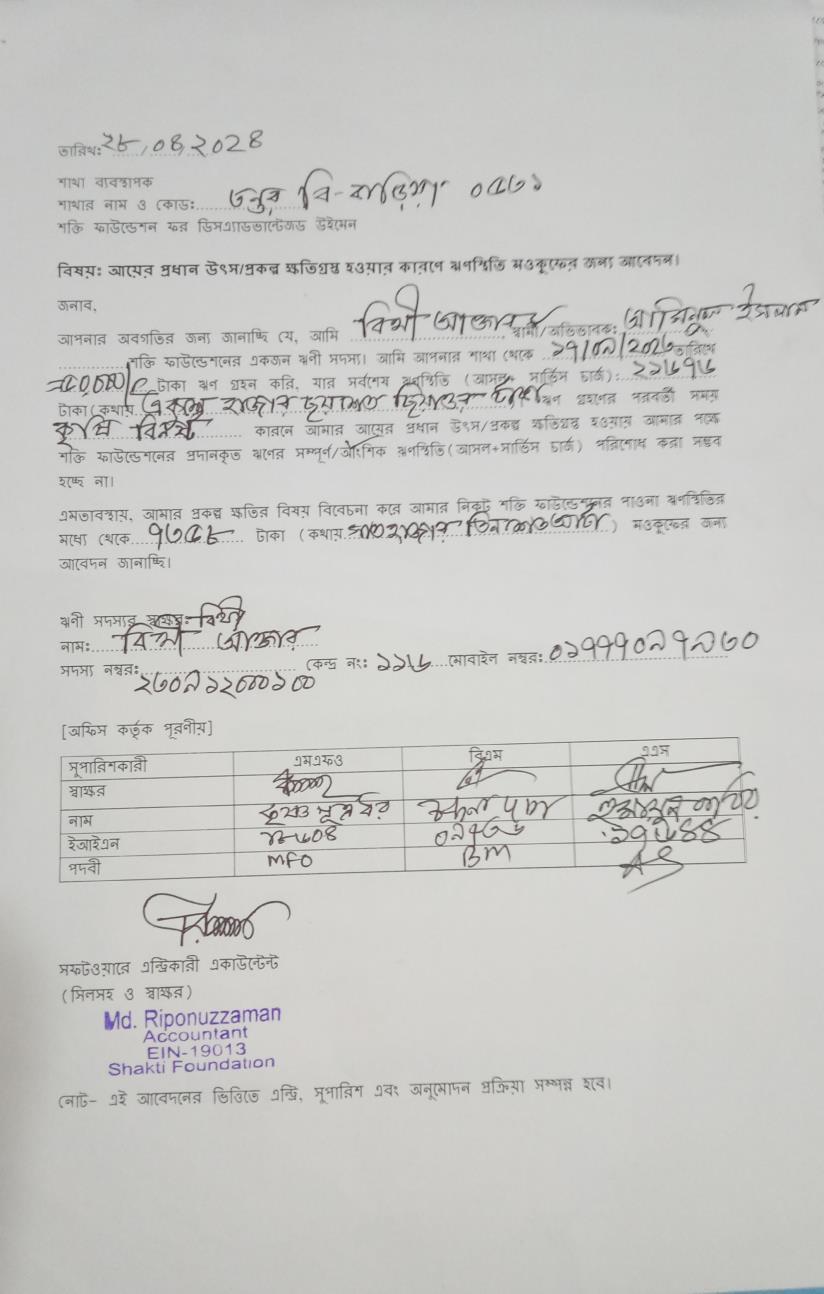 তারিখ: ২৮,০৪,২০২৪
শাখা ব্যবস্থাপক
শাখার নাম ও কোড: বি-বাড়িয়া
শক্তি ফাউন্ডেশন ফর ডিসএ্যাডভান্টেজড উইমেন
বিষয়: আয়ের প্রধান উৎস/প্রকল্প ক্ষতিগ্রস্ত হওয়ার কারণে ঋণস্থিতি মওকুফের জন্য আবেদন।
জনাব,
আপনার অবগতির জন্য জানাচ্ছি যে, আমি বিথী আক্তার স্বামী/অভিভাবক: ইসলাম
শক্তি ফাউন্ডেশনের একজন ঋনী সদস্য। আমি আপনার শাখা থেকে তারিখে
=৫০,০০০/= টাকা ঋণ গ্রহন করি, যার সর্বশেষ ঋণস্থিতি (আসল+ সার্ভিস চার্জ): ২১৬৭৬
টাকা (কথায় একুশ হাজার ছয়শত ছিয়াত্তর টাকা ঋন গ্রহনের পরবর্তী সময়
কারনে আমার আয়ের প্রধান উৎস/প্রকল্প ক্ষতিগ্রস্ত হওয়ায় আমার পক্ষে
শক্তি ফাউন্ডেশনের প্রদানকৃত ঋণের সম্পূর্ণ/আংশিক ঋণস্থিতি(আসল+সার্ভিস চার্জ) পরিশোধ করা সম্ভব
হচ্ছে না।
এমতাবস্থায়, আমার প্রকল্প ক্ষতির বিষয় বিবেচনা করে আমার নিকট শক্তি ফাউন্ডেশনের পাওনা ঋণস্থিতির
মধ্যে থেকে ৭৩৫৮ টাকা (কথায় সাত হাজার তিনশত আটান্ন) মওকুফের জন্য
আবেদন জানাচ্ছি।
ঋনী সদস্যার স্বাক্ষর: বিথী
নাম: বিথী আক্তার
সদস্য নম্বর: কেন্দ্র নং: ১১৬ মোবাইল নম্বর: ০১৭৭৭০৯৭৯৩০
২৩০৯১২০০০১০০
[অফিস কর্তৃক পূরনীয়]
সুপারিশকারী এমএফও বিএম এএস
স্বাক্ষর
নাম
ইআইএন
পদবী MFO BM AS
সফটওয়্যারে এন্ট্রিকারী একাউন্টেন্ট
(সিলসহ ও স্বাক্ষর)
Md. Riponuzzaman
Accountant
EIN-19013
Shakti Foundation
নোট- এই আবেদনের ভিত্তিতে এন্ট্রি, সুপারিশ এবং অনুমোদন প্রক্রিয়া সম্পন্ন হবে।